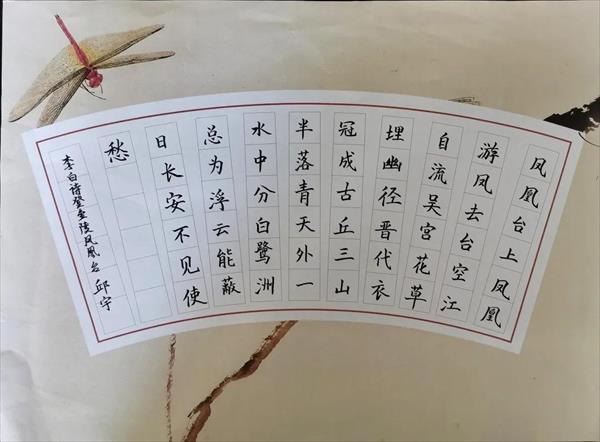 凤凰台上凤凰
游凤去台空江
自流吴宫花草
埋幽径晋代衣
冠成古丘三山
半落青天外一
水中分白鹭洲
总为浮云能蔽
日长安不见使
愁
李白诗登金陵凤凰台 邱宇